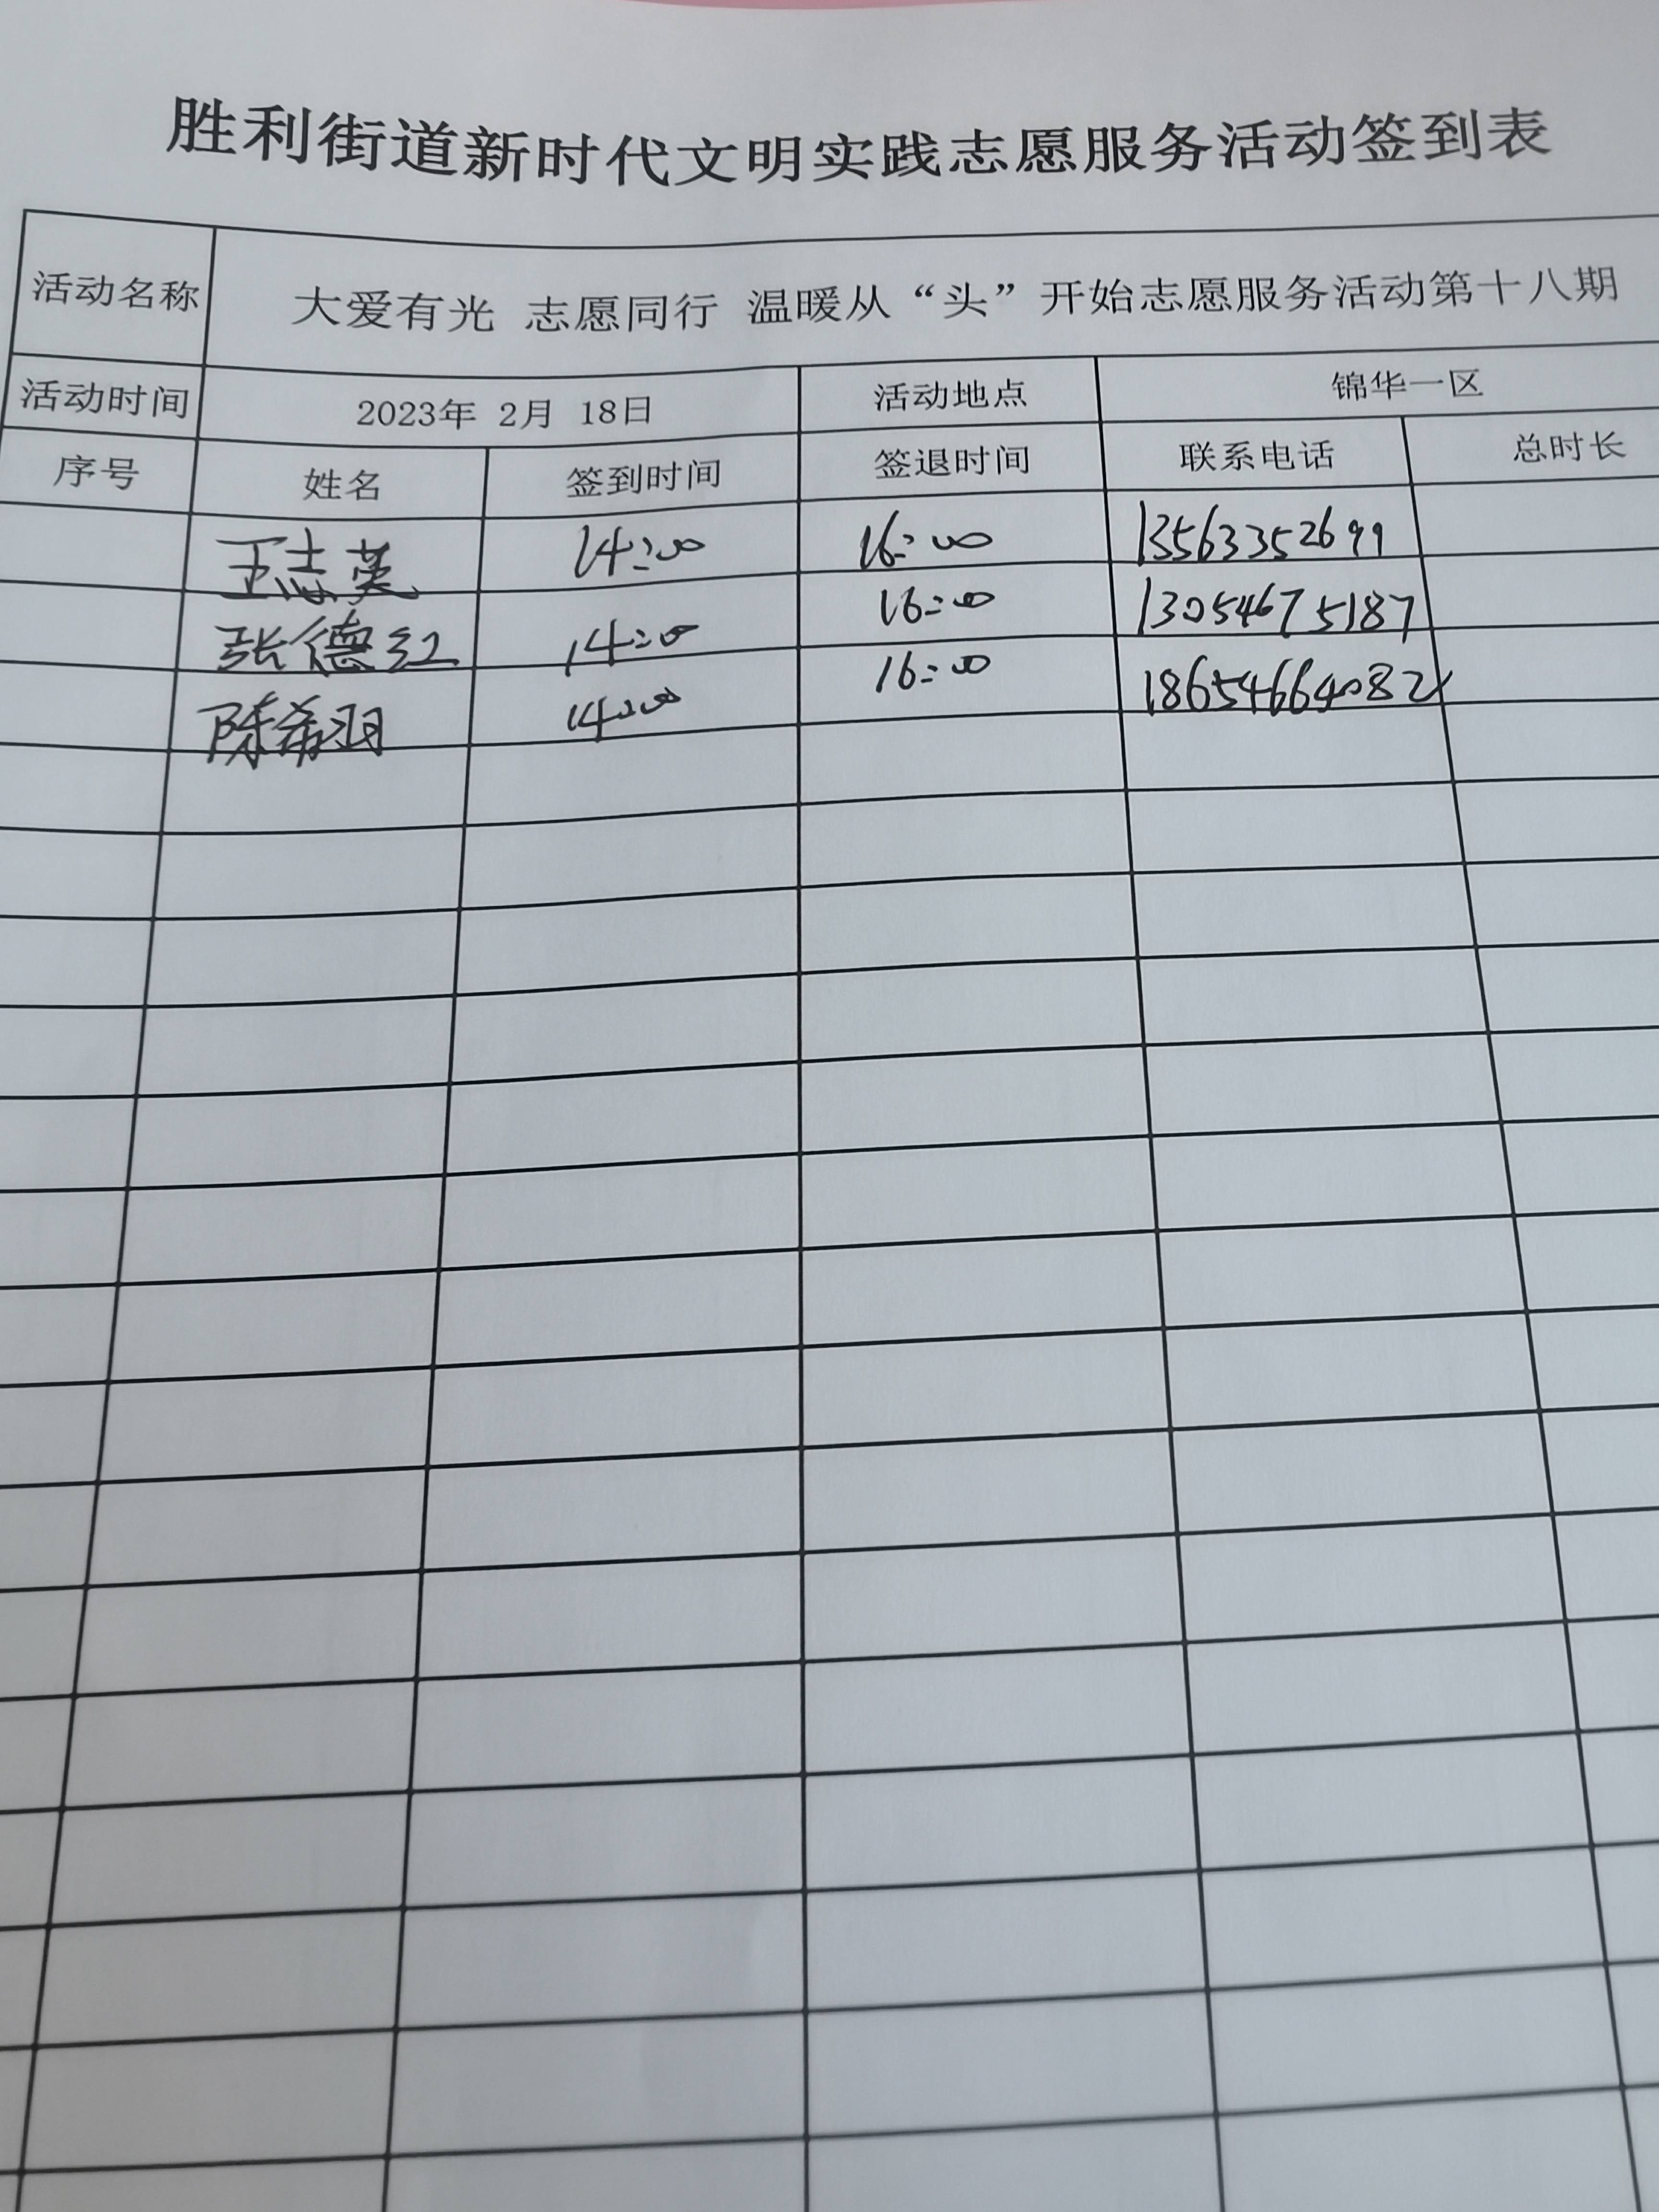 胜利街道新时代文明实践志愿服务活动签到表
活动名称 大爱有光 志愿同行 温暖从“头”开始志愿服务活动第十八期
活动时间 2023年 2月 18日 活动地点 锦华一区
序号 姓名 签到时间 签退时间 联系电话 总时长
王志英 14:00 16:00 13563352699
张德红 14:00 16:00 13054675187
陈希羽 14:00 16:00 18654664082